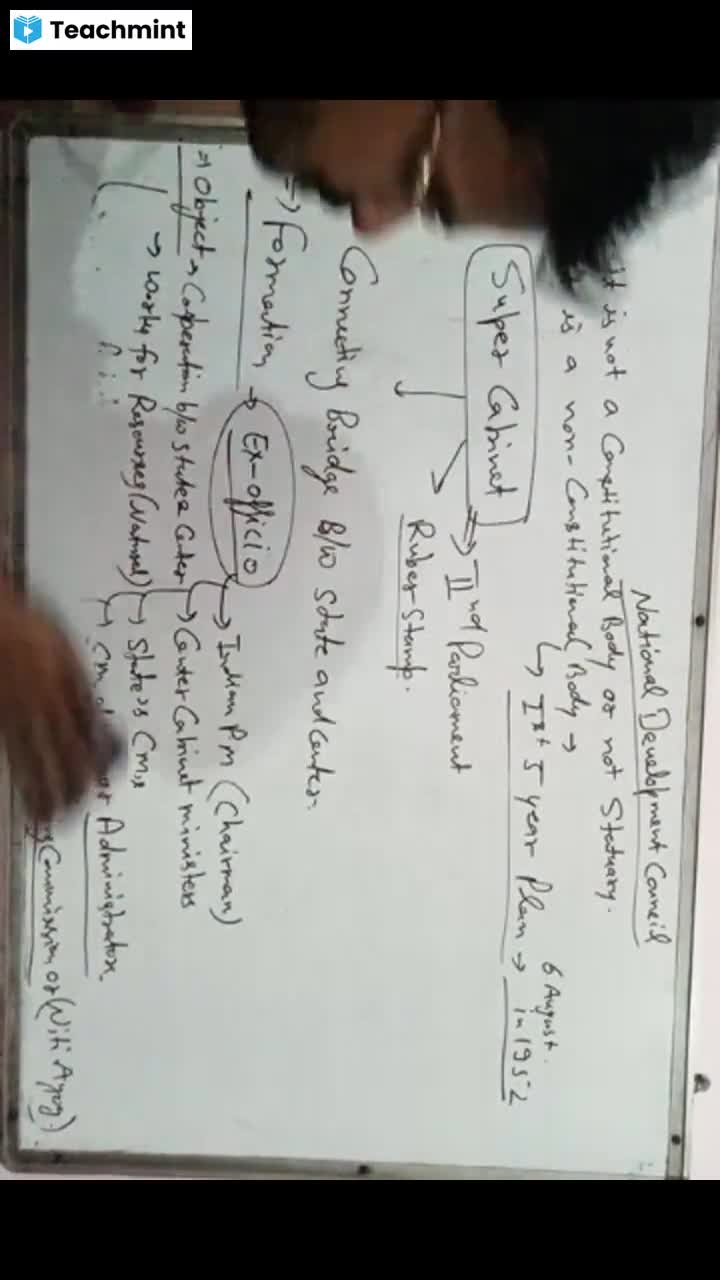 Teachmint
National Development Council
it is not a Constitutional Body or not Statuary.
is a non-Constitutional Body →
↳ Ist 5 year Plan → in 1952
6 August.
Super Cabinet
→ IInd Parliament
Ruber Stamp.
Connecting Bridge B/w state and Center.
→ Formation → Ex-officio
→ Indian Pm (Chairman)
→ Center Cabinet ministers
→ States Cm,s
→ Cm or Administrator.
Commission or (Niti Ayog).
→ Object → Coperation b/w state & Center
→ works for Resources (Natural)